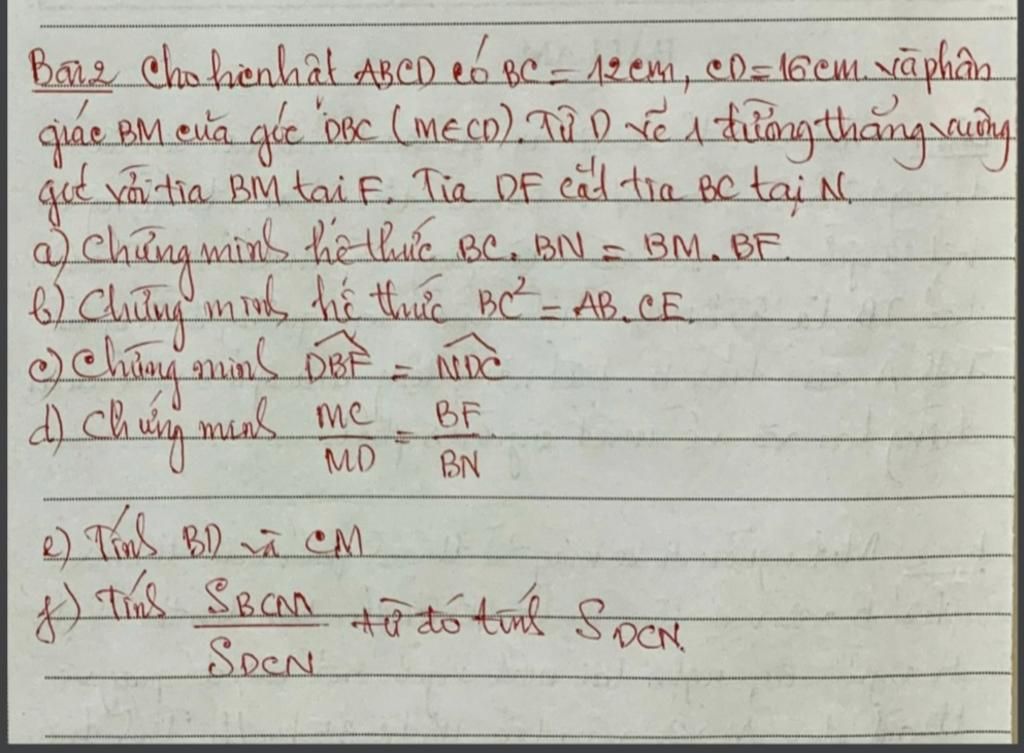 Bài 2 Cho hcnhật ABCD có BC = 12cm, CD = 16cm. và phân
giác BM của góc DBC (M∈CD). Từ D vẽ 1 đường thẳng vuông
góc với tia BM tại F. Tia DF cắt tia BC tại N.
a) Chứng minh hệ thức BC. BN = BM. BF.
b) Chứng minh hệ thức BC² = AB. CE.
c) Chứng minh \widehat{DBF} = \widehat{NDC}
d) Chứng minh \frac{MC}{MD} = \frac{BF}{BN}.
e) Tính BD và CM
f) Tính \frac{S_{BCM}}{S_{DCN}} từ đó tính S_{DCN}.